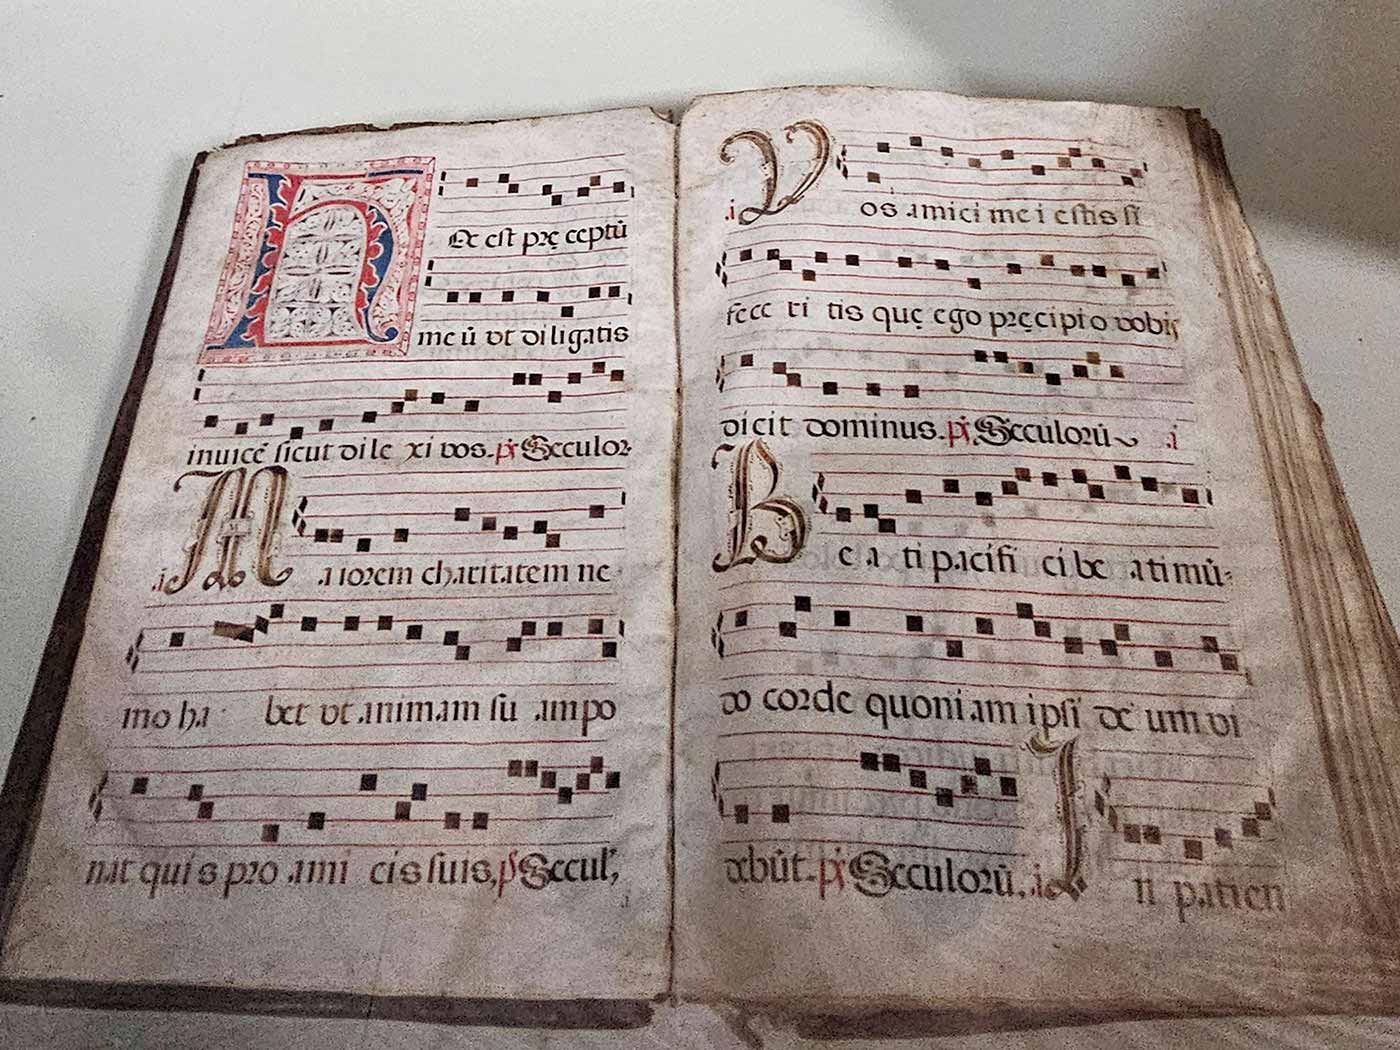 Hoc est pręceptū
meū vt diligatis
inuicē sicut dilexi vos. ps Seculor
a Maiorem charitatem ne
mo habet vt animam suam po
nat quis pro amicis suis, ps Secul,
a Vos amici mei estis si
feceritis quę ego pręcipio vobis
dicit dominus. ps Seculorū a
Beati pacifici beati mū-
do corde quoniam ipsi deum vi
debūt. ps Seculorū. a In patien